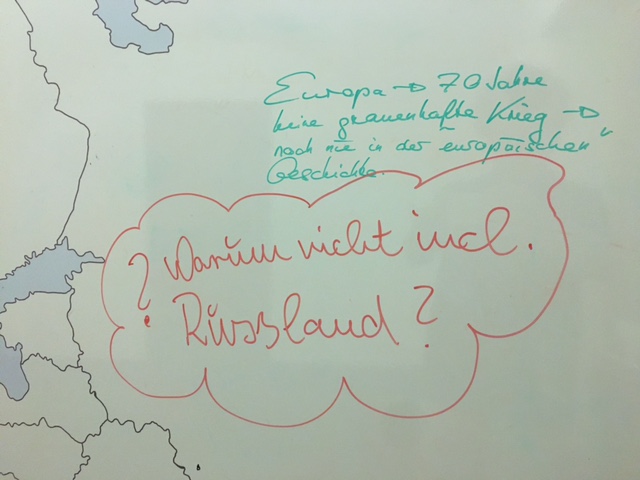 Europa → 70 Jahre
keine grauenhafte Krieg →
noch nie in der "europäischen"
Geschichte.
? Warum nicht incl.
Russland?